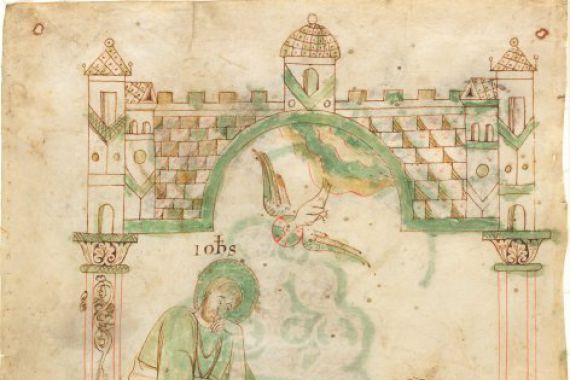 ioħs